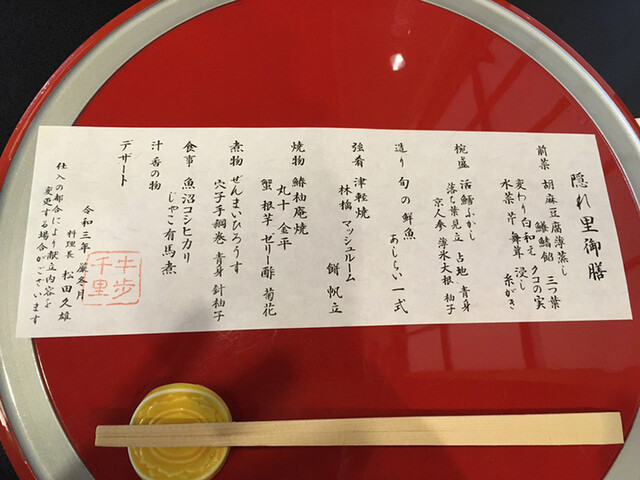 隠れ里御膳
前菜 胡麻豆腐薄蒸し 三つ葉
鱶鰭餡 クコの実
変わり白和え 浸し
水菜 芹 舞茸 糸がき
椀盛 活鱈ふかし
落ち葉見立 占地 青身
京人参 薄氷大根 柚子
造り 旬の鮮魚 あしらい一式
強肴 津軽焼
林檎 マッシュルーム 帆立
焼物 鰆柚庵焼
丸十 金平
蟹 根芋 ゼリー酢 菊花
煮物 ぜんまいひろうす
穴子手綱巻 青身 針柚子
食事 魚沼コシヒカリ
じゃこ有馬煮
汁 香の物
デザート
令和三年 厳冬月
料理長 松田久雄
仕入の都合により献立内容を
変更する場合がございます
牛歩
千里